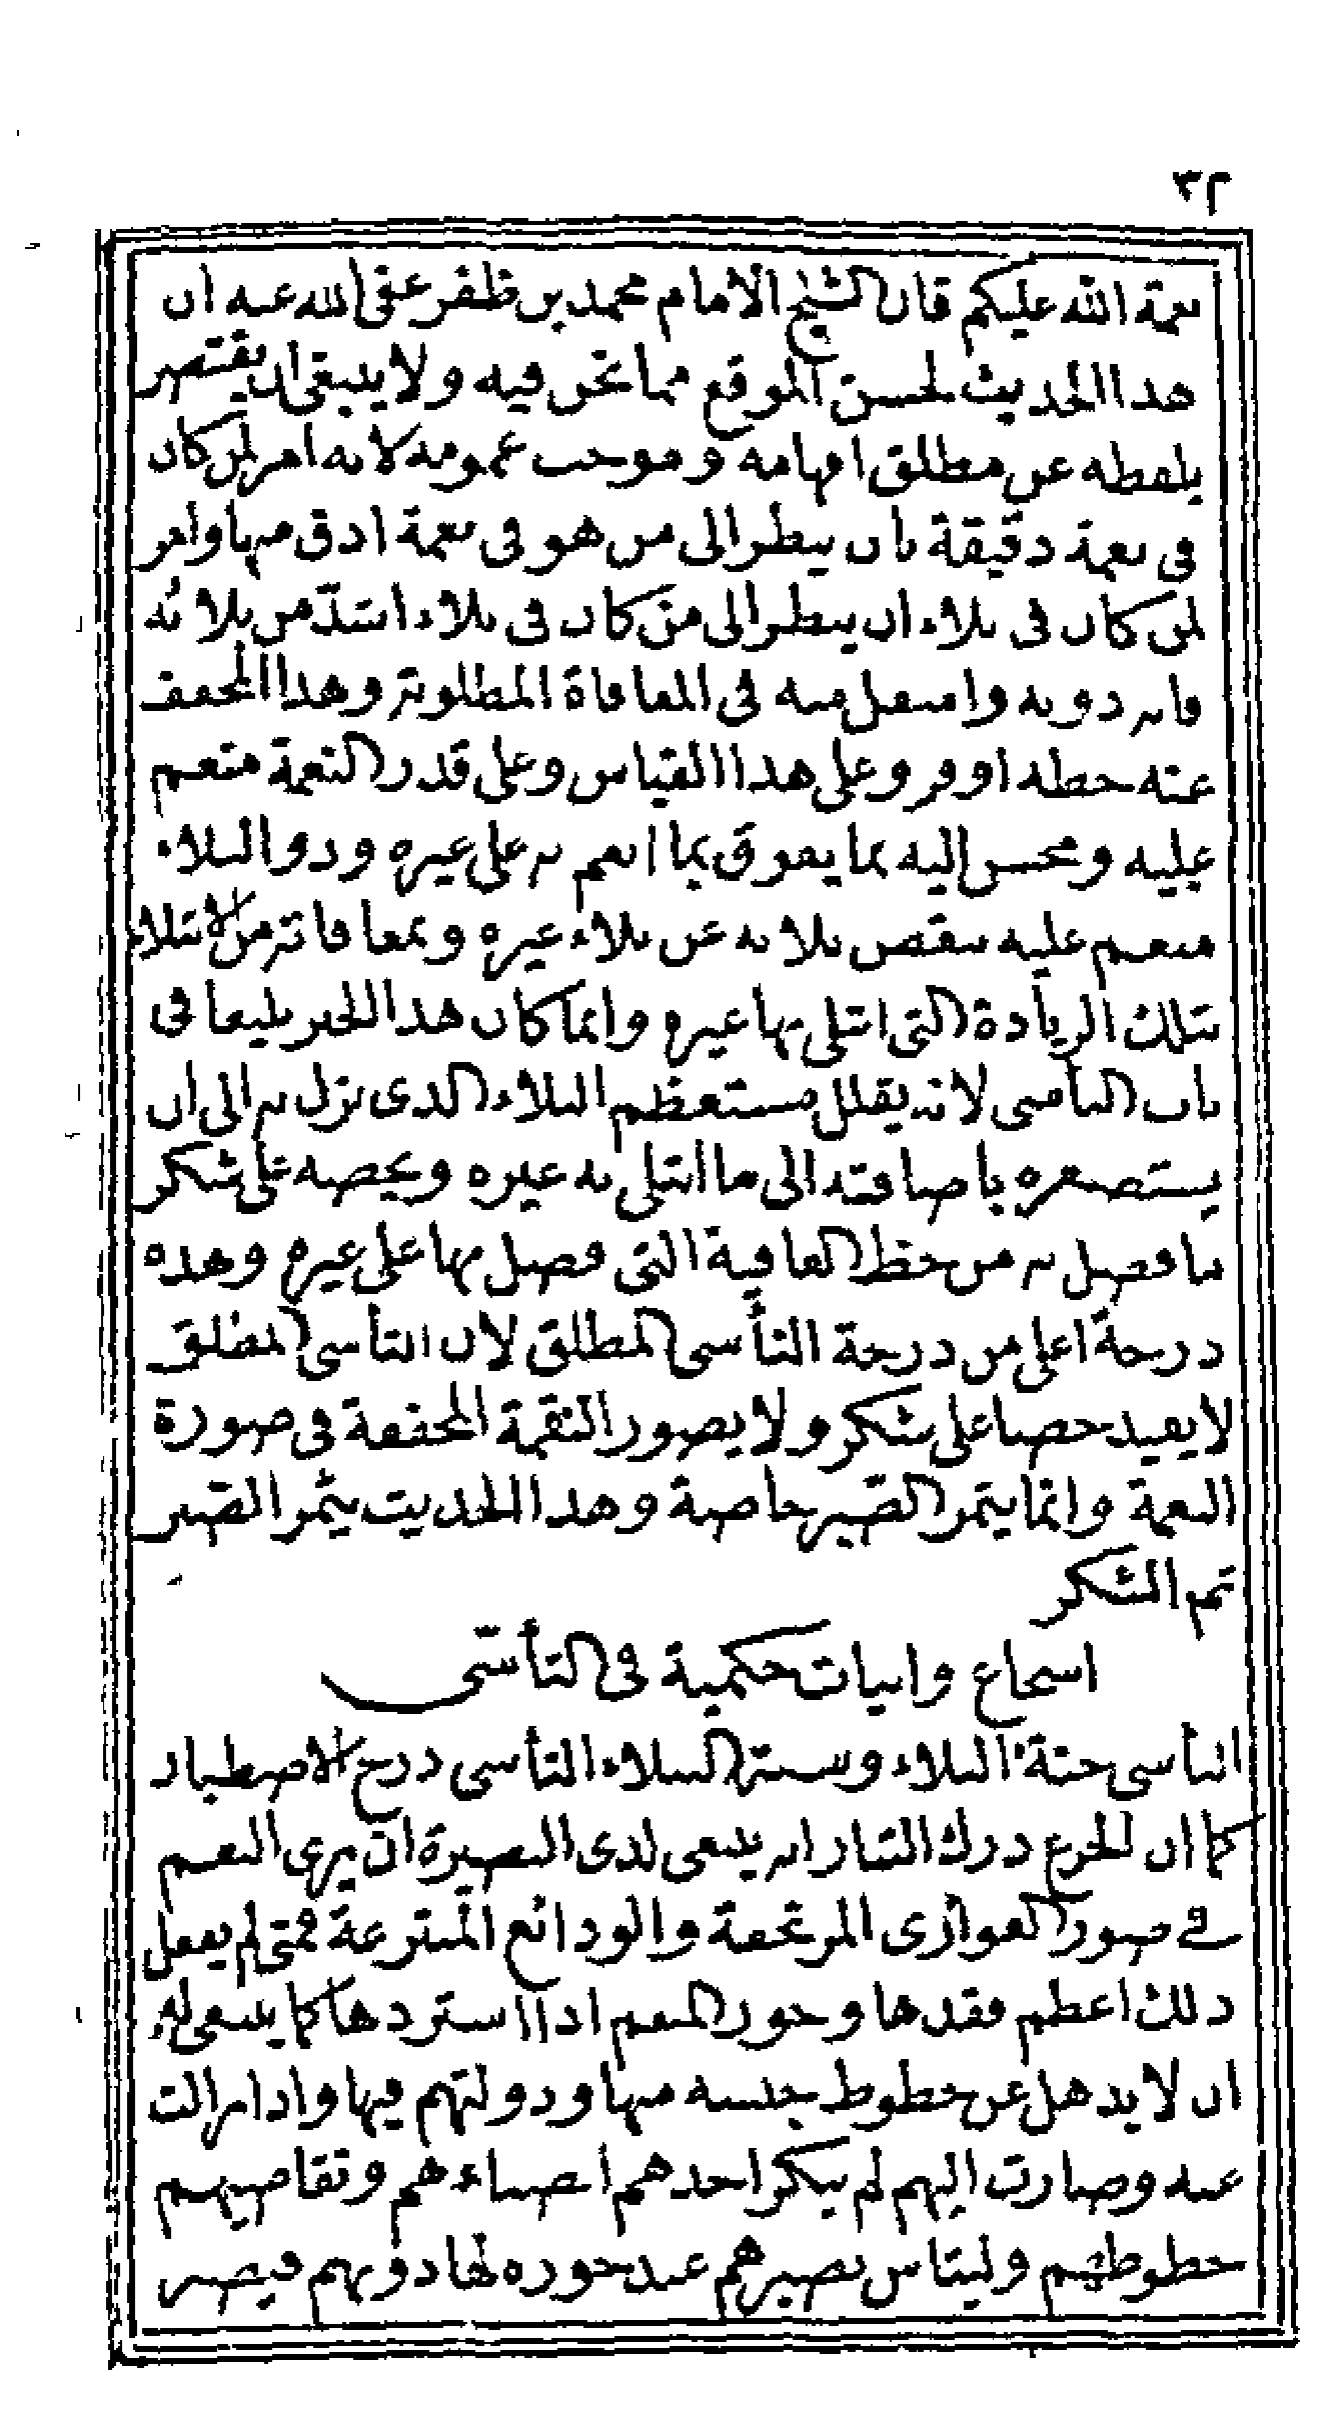 ٣٢
نعمة الله عليكم قال الشيخ الامام محمد بن ظفر عفى الله عنه ان
هذا الحديث لحسن الموقع مما نحن فيه ولا ينبغى ان يقتصر
بلفظه عن مطلق افهامه وموجب عمومه لانه امر لمن كان
فى نعمة دقيقة بان ينظر الى من هو فى نعمة ادق منها وامر
لمن كان فى بلاء ان ينظر الى من كان فى بلاء اشدّ من بلائه
فانه دونه وافضل منه فى المعافاة المطلوبة وهذا المخفف
عنه حظه اوفر وعلى هذا القياس وعلى قدر النعمة منعم
عليه ومحسن اليه بما يفوق بما انعم به على غيره وذو البلاء
منعم عليه بنقص بلائه عن بلاء غيره وبمعافاته من الابتلاء
بتلك الزيادة التى ابتلى بها غيره وانما كان هذا الخبر بليغا فى
باب التأسى لانه يقلل مستعظم البلاء الذى نزل به الى ان
يستصغره باضافته الى ما ابتلى به غيره ويحضه على شكر
ما فضل به من حظ العافية التى فضل بها على غيره وهذه
درجة اعلى من درجة التأسى المطلق لان التأسى المطلق
لا يفيد حضا على شكر ولا يصور النقمة المخففة فى صورة
النعمة وانما يثمر الصّبر خاصة وهذا الحديث يثمر الصّبر
ثم الشكر
اسجاع وابيات حكمية فى التأسّى
التأسى جنة البلاء وسنة النبلاء التأسى درج الاصطبار
كما ان الجزع درك التبار انه ينبغى لذى البصيرة ان يرى النعم
فى صور العوارى المرتجعة والودائع المنتزعة فمتى لم يفعل
ذلك اعظم فقدها وجور المنعم اذا استردها كما ينبغى له
ان لا يذهل عن حظوظ جنسه منها ودولتهم فيها واذا زالت
عنه وصارت اليهم لم ينكر احدهم وتقاضيهم
حظوظهم وليتأس بصبرهم عند حوزه لها دونهم فيصبر